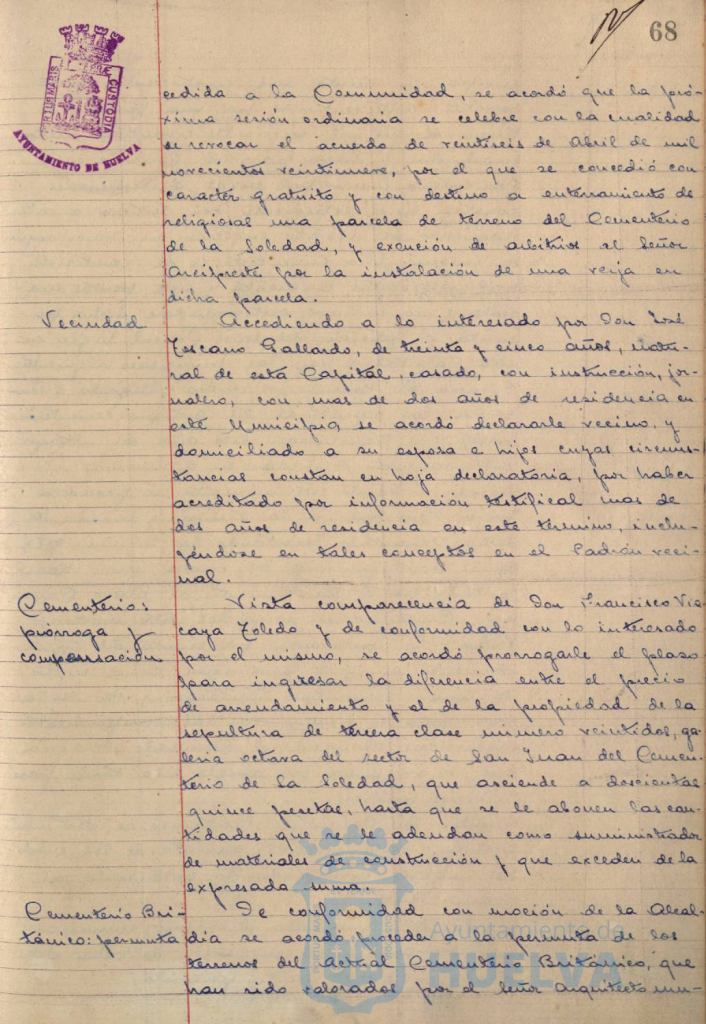 68
PORTUS MARIS
CUSTODIA
AYUNTAMIENTO DE HUELVA
cedida a la Comunidad, se acordó que la pró-
xima sesión ordinaria se celebre con la cualidad
de revocar el acuerdo de veintiseis de Abril de mil
novecientos veintinueve, por el que se concedió con
caracter gratuito y con destino a enterramiento de
religiosas una parcela de terreno del Cementerio
de la Soledad, y exención de arbitrios al Señor
Arcipreste por la instalación de una verja en
dicha parcela.
Vecindad
Accediendo a lo interesado por Don José
Toscano Gallardo, de treinta y cinco años, natu-
ral de esta Capital, casado, con instrucción, jor-
nalero, con mas de dos años de residencia en
este Municipio, se acordó declararle vecino, y
domiciliado a su esposa e hijos cuyas circuns-
tancias constan en hoja declaratoria, por haber
acreditado por información testifical mas de
dos años de residencia en este término, inclu-
yéndose en tales conceptos en el Padrón veci-
nal.
Cementerio:
prórroga y
compensación
Vista comparecencia de Don Francisco Viz
caya Toledo y de conformidad con lo interesado
por el mismo, se acordó prorrogarle el plazo
para ingresar la diferencia entre el precio
de arrendamiento y el de la propiedad de la
sepultura de tercera clase número veintidos, ga-
leria octava del sector de San Juan del Cemen-
terio de la Soledad, que asciende a doscientas
quince pesetas, hasta que se le abonen las can-
tidades que se le adeudan como suministrador
de materiales de construcción y que exceden de la
expresada suma.
Cementerio Bri-
tánico: permuta
De conformidad con moción de la Alcal-
dia se acordó proceder a la permuta de los
terrenos del actual Cementerio Británico, que
han sido valorados por el Señor Arquitecto mu-
Ayuntamiento de
HUELVA